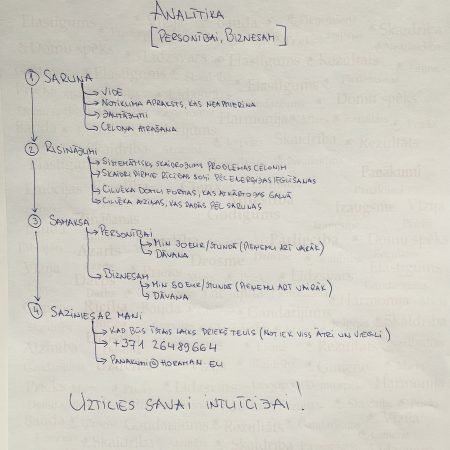 ANALĪTIKA
[PERSONĪBAI, BIZNESAM]
1 SARUNA
VIDE
NOTIKUMA APRAKSTS, KAS NEAPMIERINA
JAUTĀJUMI
CĒLOŅA ATRAŠANA
2 RISINĀJUMI
SISTEMĀTISKS SKAIDROJUMS PROBLĒMAS CĒLONIM
SKAIDRI PIRMIE RĪCĪBAS SOĻI PĒC ENERĢIJAS IEGŪŠANAS
CILVĒKA DOMU FORMAS, KAS ATKĀRTOJAS GALVĀ
CILVĒKA AIZIŅAS, KAS RADĀS PĒC SARUNAS
3 SAMAKSA
PERSONĪBAI
MIN 30 EUR/STUNDA (PIEŅEMU ARĪ VAIRĀK)
DĀVANA
BIZNESAM
MIN 50 EUR/STUNDA (PIEŅEMU ARĪ VAIRĀK)
DĀVANA
4 SAZINIES AR MANI
KAD BŪS ĪSTAIS LAIKS PRIEKŠ TEVIS (NOTIEK VISS ĀTRI UN VIEGLI)
+371 26489664
PANAKUMI@HORAMAN.EU
UZTICIES SAVAI INTUĪCIJAI!